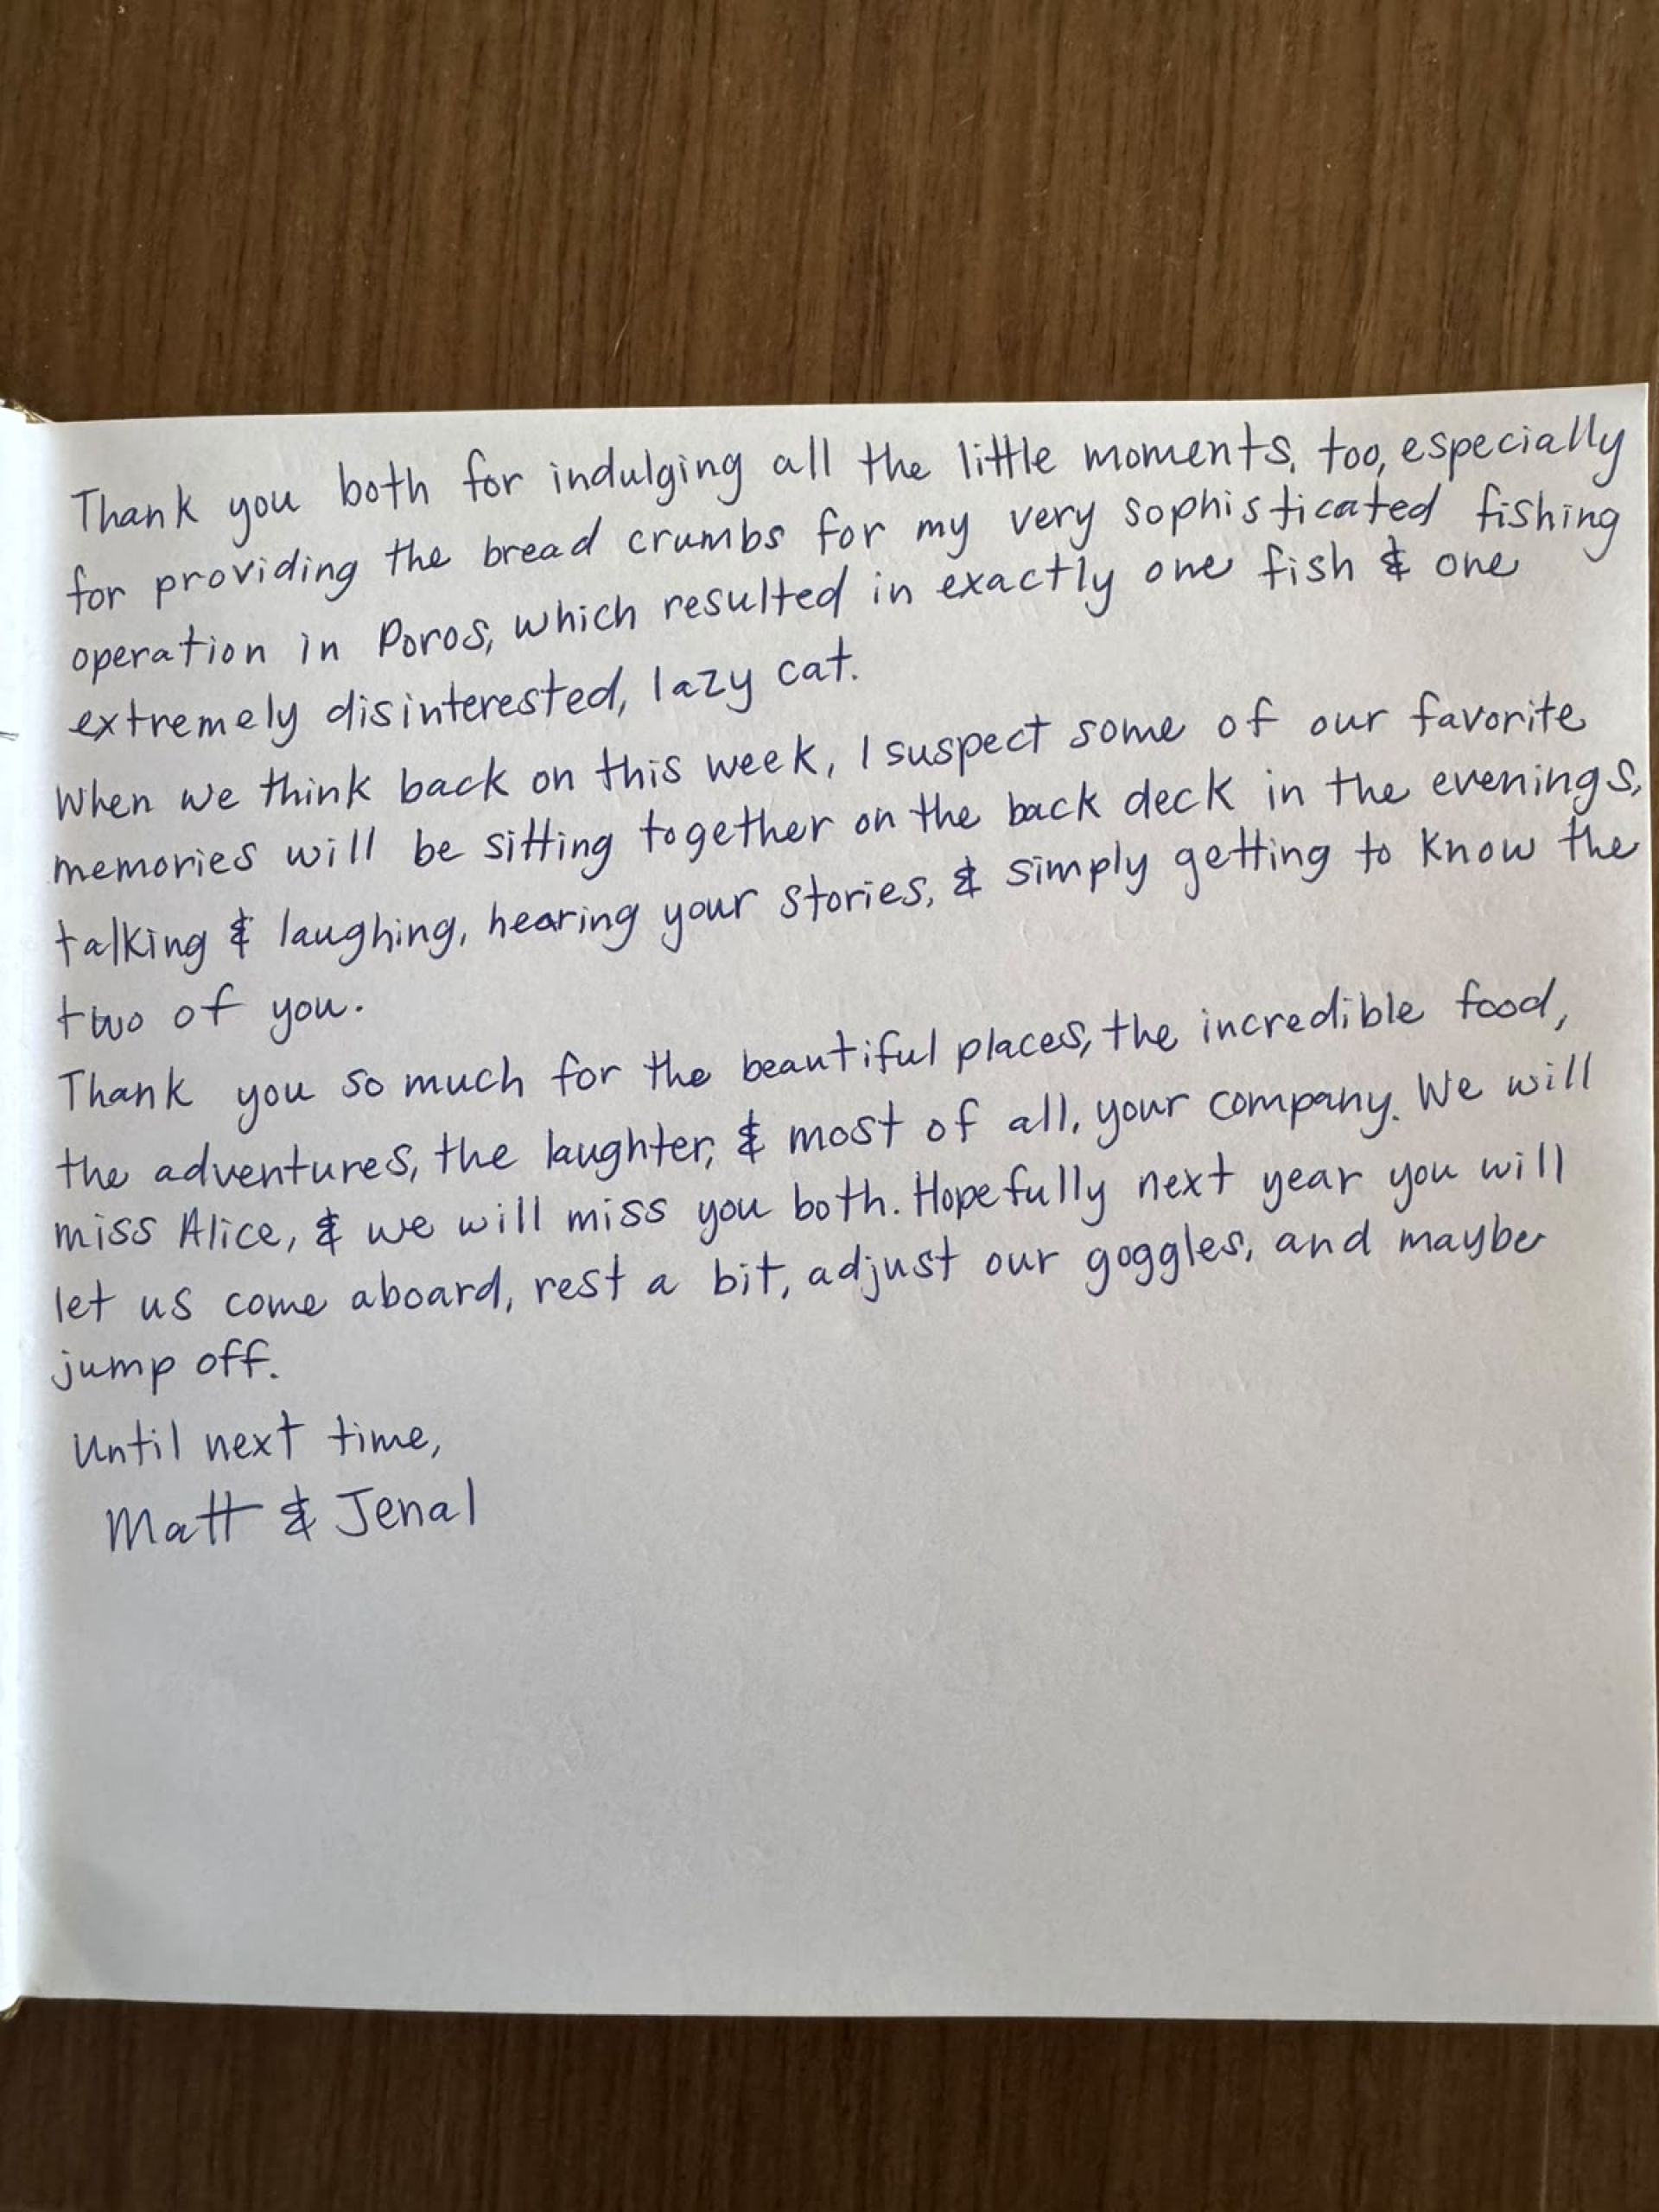 Thank you both for indulging all the little moments, too, especially
for providing the bread crumbs for my very sophisticated fishing
operation in Poros, which resulted in exactly one fish & one
extremely disinterested, lazy cat.
When we think back on this week, I suspect some of our favorite
memories will be sitting together on the back deck in the evenings,
talking & laughing, hearing your stories, & simply getting to know the
two of you.
Thank you so much for the beautiful places, the incredible food,
the adventures, the laughter, & most of all, your company. We will
miss Alice, & we will miss you both. Hopefully next year you will
let us come aboard, rest a bit, adjust our goggles, and maybe
jump off.
Until next time,
Matt & Jenal